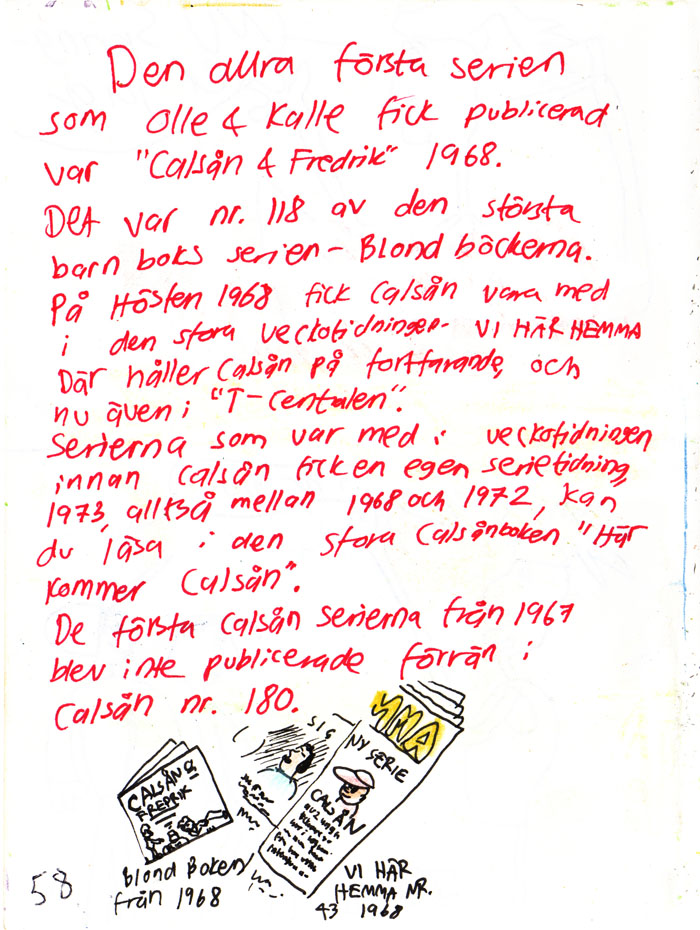 Den allra första serien
som Olle & Kalle fick publicerad
var "Calsån & Fredrik" 1968.
Det var nr. 118 av den största
barn boks serien - Blond böckerna.
På Hösten 1968 fick Calsån vara med
i den stora veckotidningen - VI HÄR HEMMA
Där håller Calsån på fortfarande, och
nu även i "T-Centalen".
Serierna som var med i veckotidningen
innan Calsån fick en egen serietidning,
1973, alltså mellan 1968 och 1972, kan
du läsa i den stora Calsånboken "Här
kommer Calsån".
De första Calsån serierna från 1967
blev inte publicerade förrän i
Calsån nr. 180.
SIG
MMA
NY SERIE
CALSÅN
CALSÅN &
FREDRIK
Blond Boken
från 1968
VI HÄR
HEMMA NR.
43 1968
58